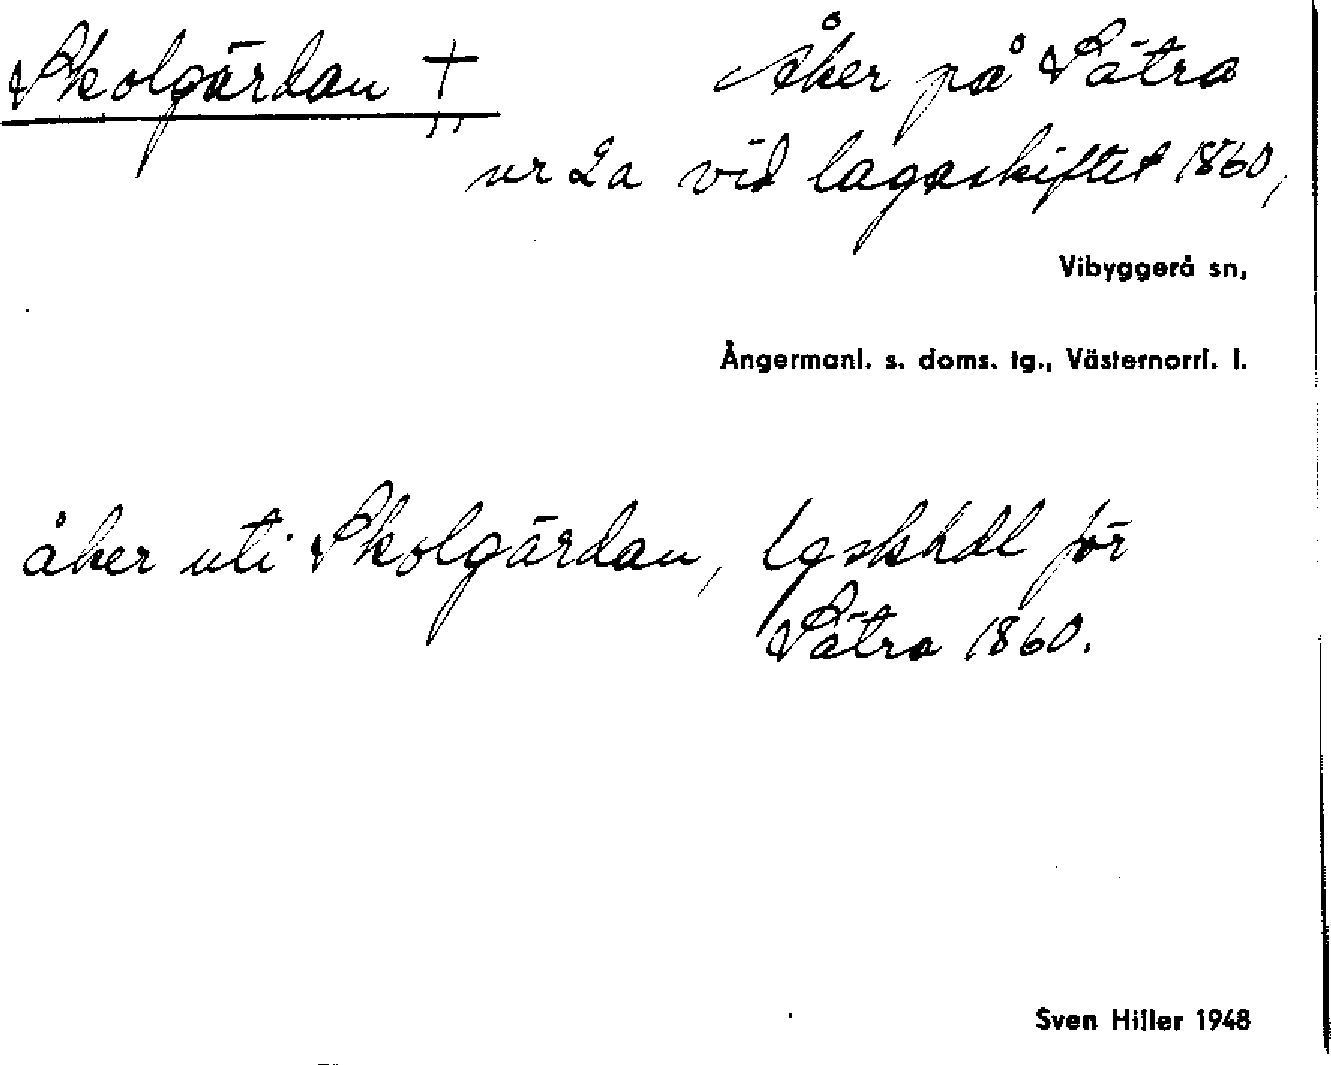 Skolgärdan † Åker på Sätra
nr 2a vid lagaskiftet 1860,
Vibyggerå sn,
Ångermanl. s. doms. tg., Västernorrl. l.
åker uti Skolgärdan, lgskhdl för
Sätra 1860.
Sven Hiller 1948